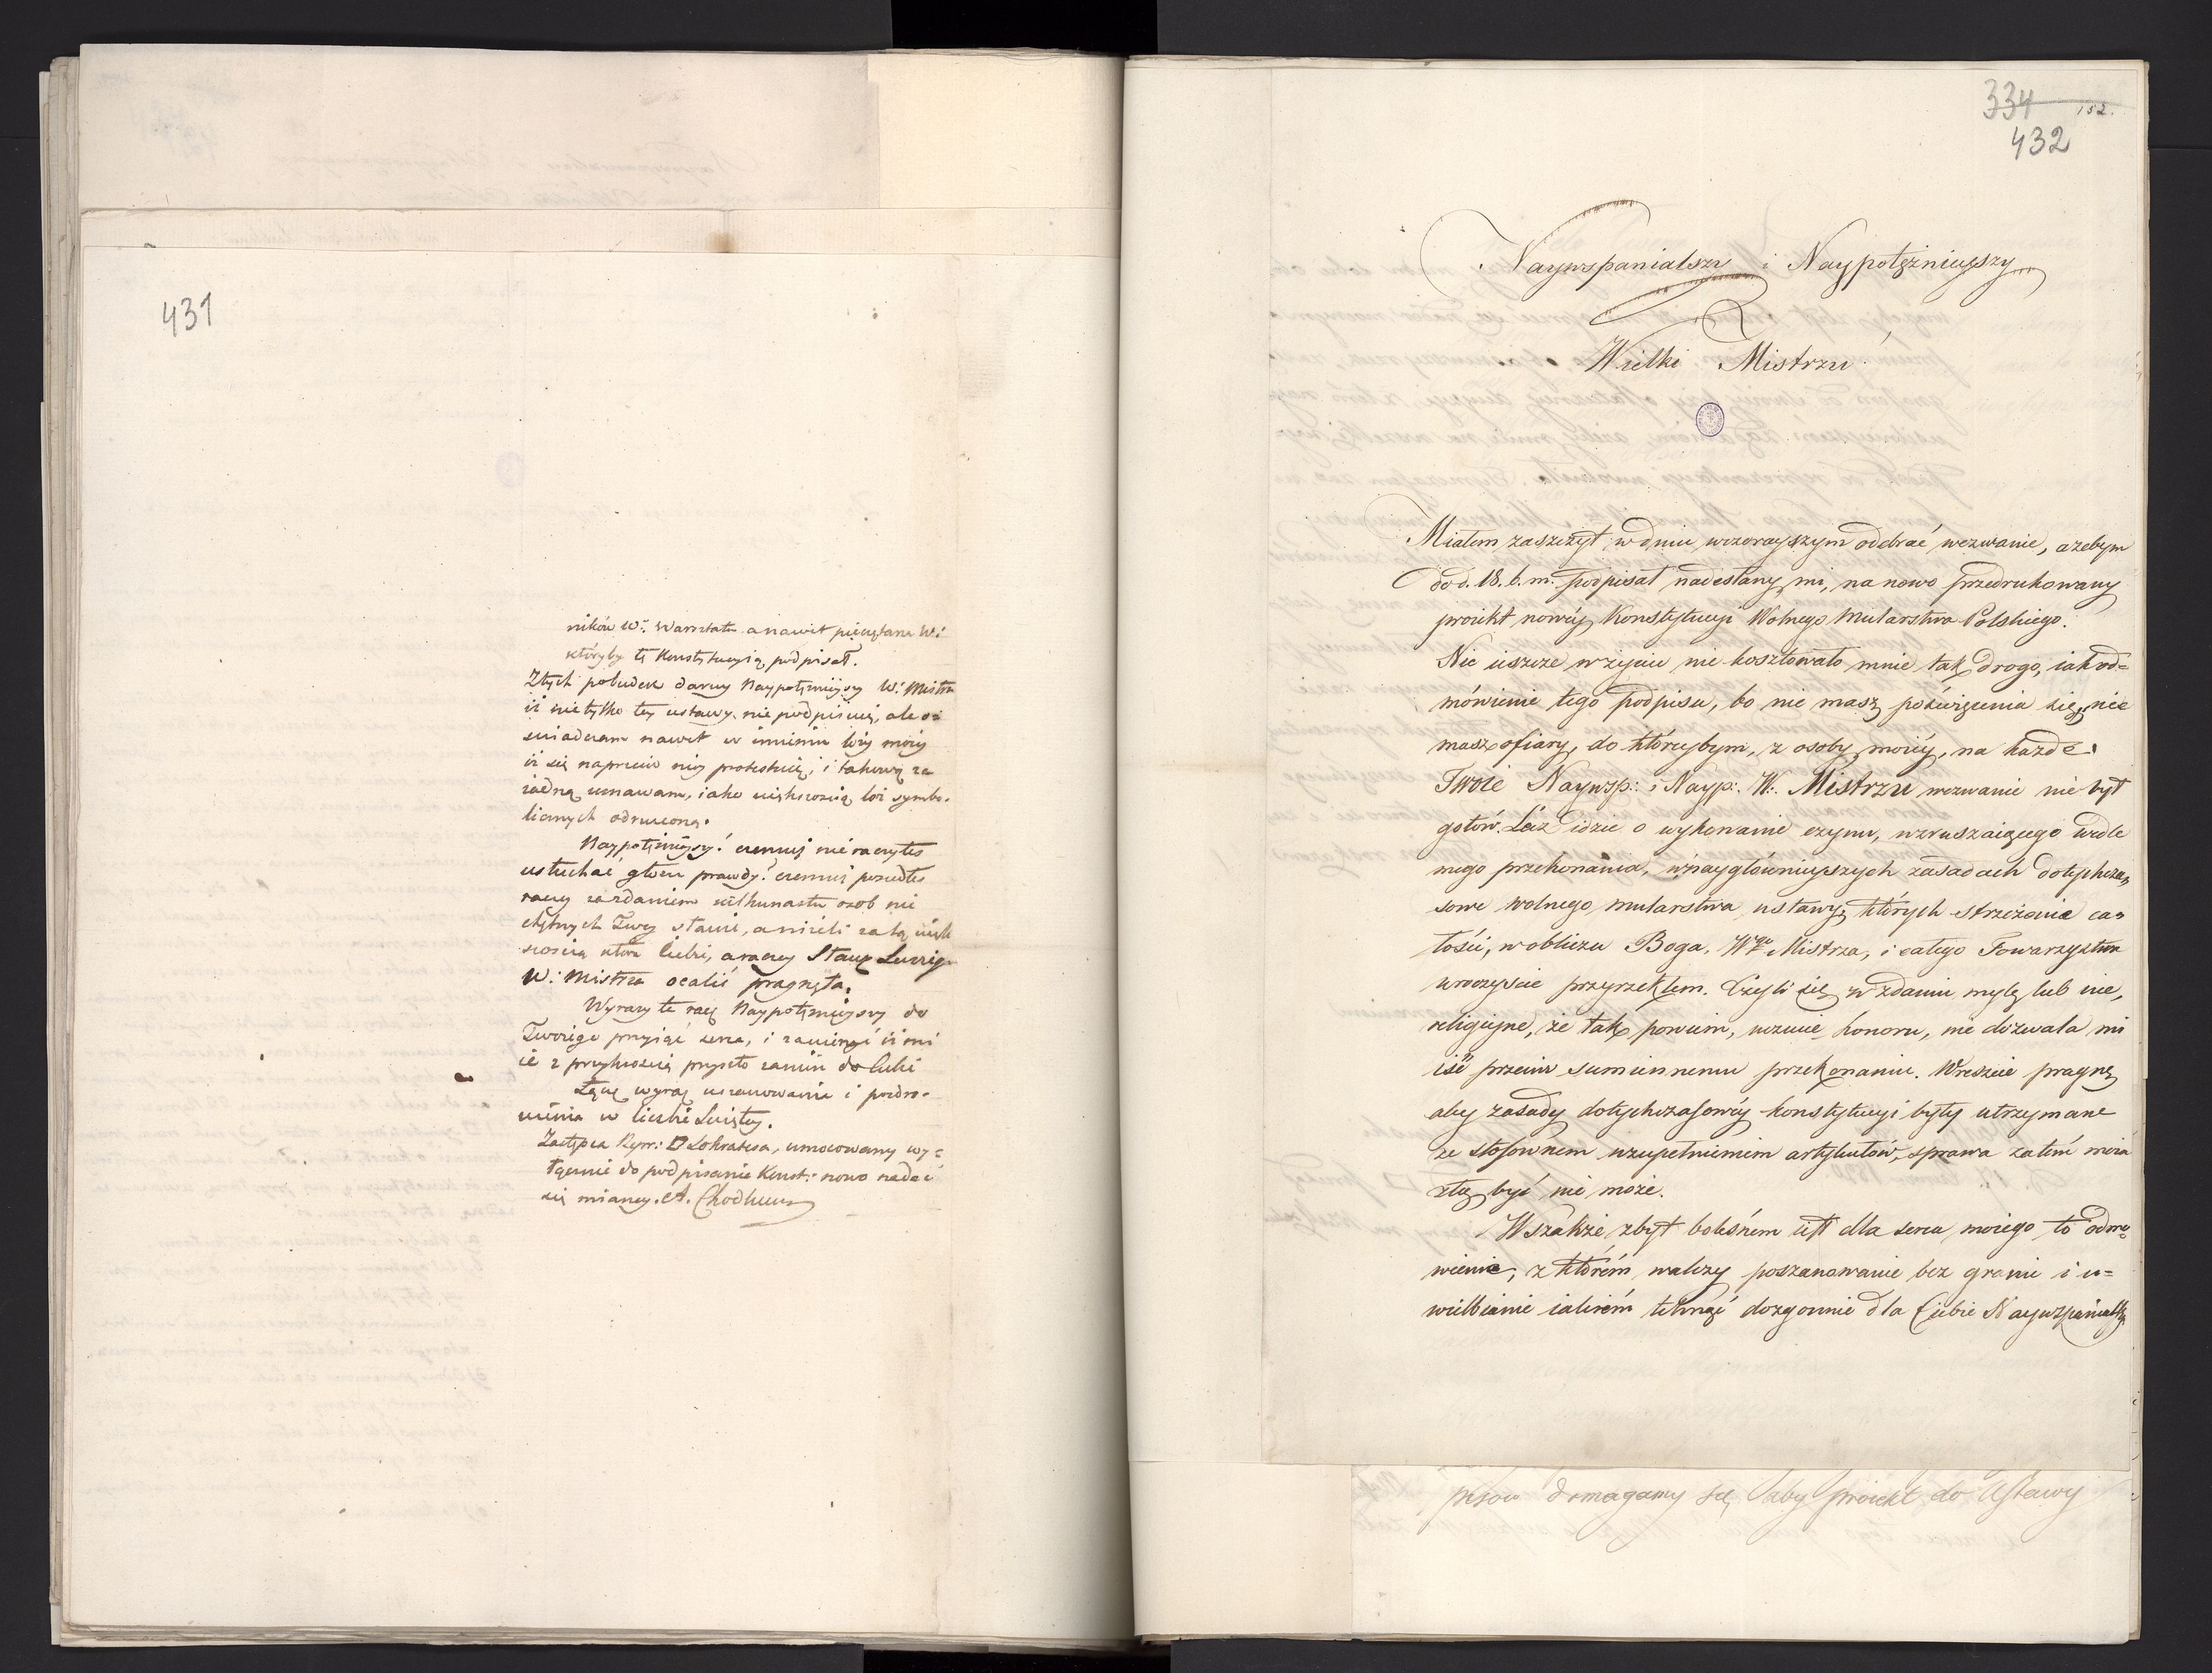 431
ników W∴ Warsztatu a nawet pieczętarz W∴
któryby tę Konstytucyią podpisał.
Z tych pobudek daruy Naypotężnieyszy W∴ Mistrzu
iż nie tylko tey ustawy nie podpisuię, ale o=
swiadczam nawet w imieniu loży moiey
iż się naprzeciw niey protestuię, i takową za
żadną uznawam, iako większością lóż symbo=
licznych odrzuconą.
Naypotężnieyszy! czemuż nie raczyłeś
usłuchać głosu prawdy? czemuż poszedłeś
raczey za zdaniem kilkunastu osob nie
chętnych Twey sławie, a nieżeli za tą więk
szością która Ciebie, a raczey Sławę Swoiego
W∴ Mistrza ocalić pragnęła.
Wyrazy te racz Naypotężnieyszy do
Twoiego przyiąć serca, i zawierzyć iż mi
ie z przykrością przyszło zanieść do Ciebie
Łączę wyraz uszanowania i pozdro=
wienia w liczbie Świętey.
Zastępca Repr: □ Sokratesa, umocowany wy=
łącznie do podpisania Konst: nowo nadać
się mianey. A. Chodkiewicz
334 152.
432
Naywspanialszy i Naypotężnieyszy
Wielki Mistrzu!
Miałem zaszczyt w dniu wczorayszym odebrać wezwanie, ażebym
do d. 18. b. m. podpisał nadesłany mi, na nowo przedrukowany
proiekt nowéy Konstytucyi Wolnego Mularstwa Polskiego.
Nic ieszcze w życiu nie kosztowało mnie tak drogo, iak od=
mówienie tego podpisu, bo nie masz poświęcenia się, nie
masz ofiary, do któreybym, z osoby moiéy, na każde
Twoie Naywsp: i Nayp: W: Mistrzu wezwanie nie był
gotów. Lecz idzie o wykonanie czynu, wzruszaiącego wedle
mego przekonania, w naygłównieyszych zasadach dotychcza=
sowe wolnego mularstwa ustawy, których strzeżenie ca=
łości, w obliczu Boga, Wgo Mistrza, i całego Towarzystwa
uroczyscie przyrzekłem. Czyli się w zdaniu mylę lub nie,
religiyne, że tak powiem, uczucie honoru, nie dozwala mi
iść przeciw sumiennemu przekonaniu. Wreszcie pragnę
aby zasady dotychczasowéy konstytucyi były utrzymane
ze stosownem uzupełnieniem artykułów, sprawa zatém moia
złą być nie może.
Wszakże zbyt bolesném iest dla serca moiego to odmó=
wienie, z którém walczy poszanowanie bez granic i u=
wielbienie iakiém tchnąć dozgonnie dla Ciebie Naywspanialszy
pisow domagamy się aby proiekt do Ustawy